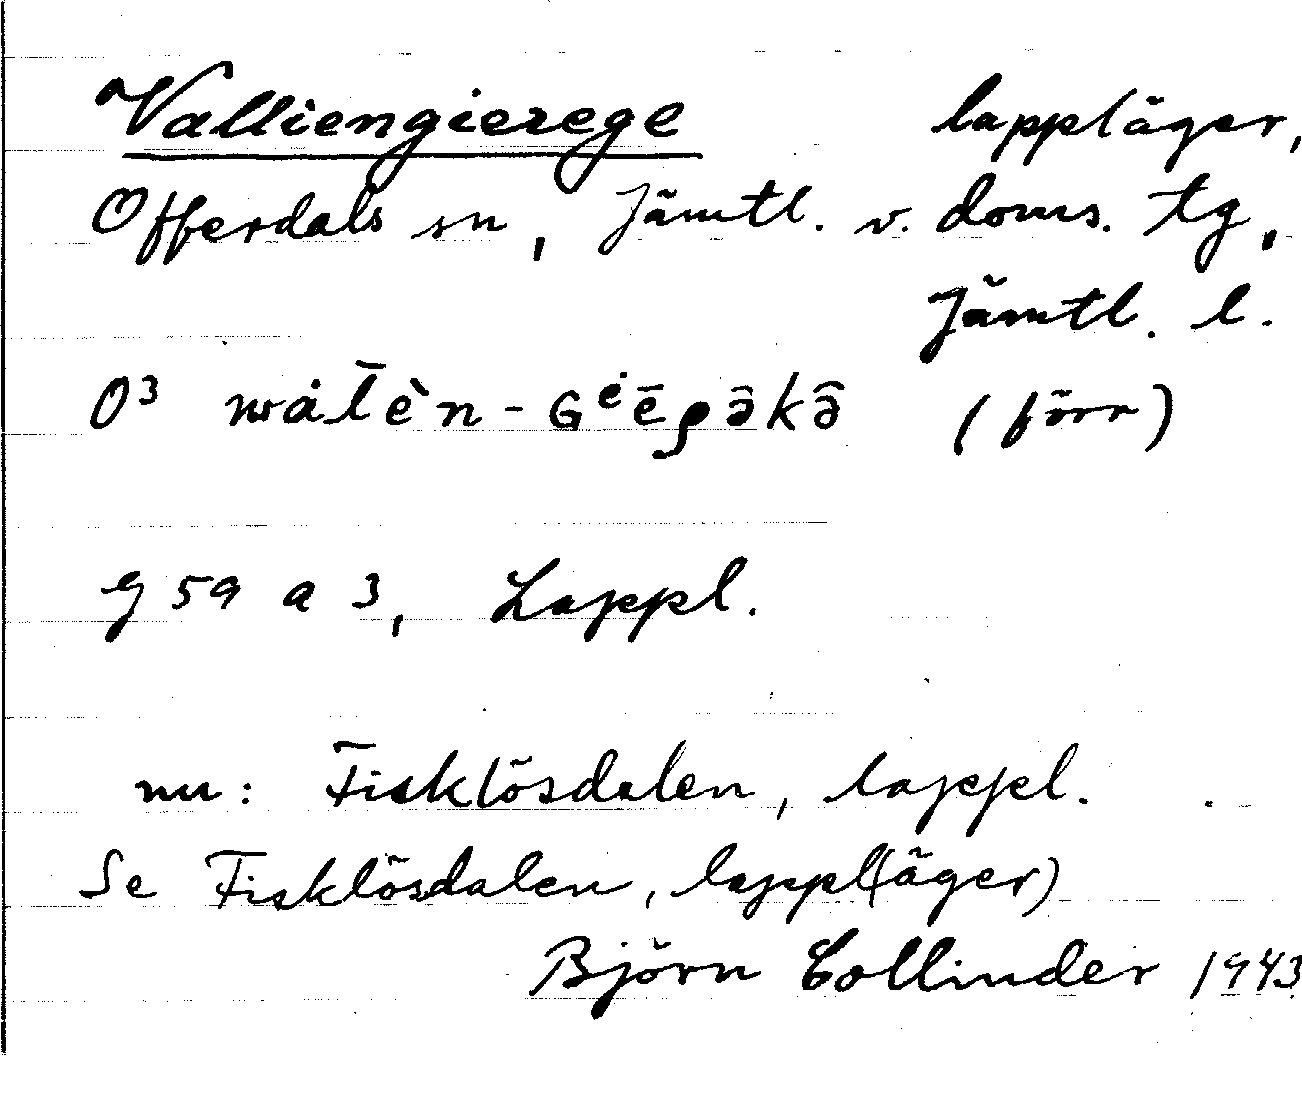 Valliengierege lappläger,
Offerdals sn, Jämtl. v. doms. tg,
Jämtl. l.
O³ wȧl̄èn-Gᵉ̇ēρə̂kə̂ (förr)
G 59 a 3, Lappl.
nu: Fisklösdalen, lappl.
Se Fisklösdalen, lappl(äger)
Björn Collinder 1943